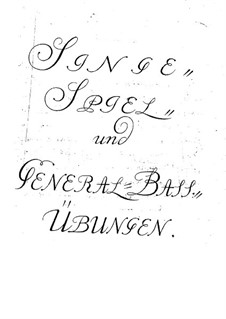 SINGE„
SPIEL„
und
GENERAL=BASS„
ÜBUNGEN.